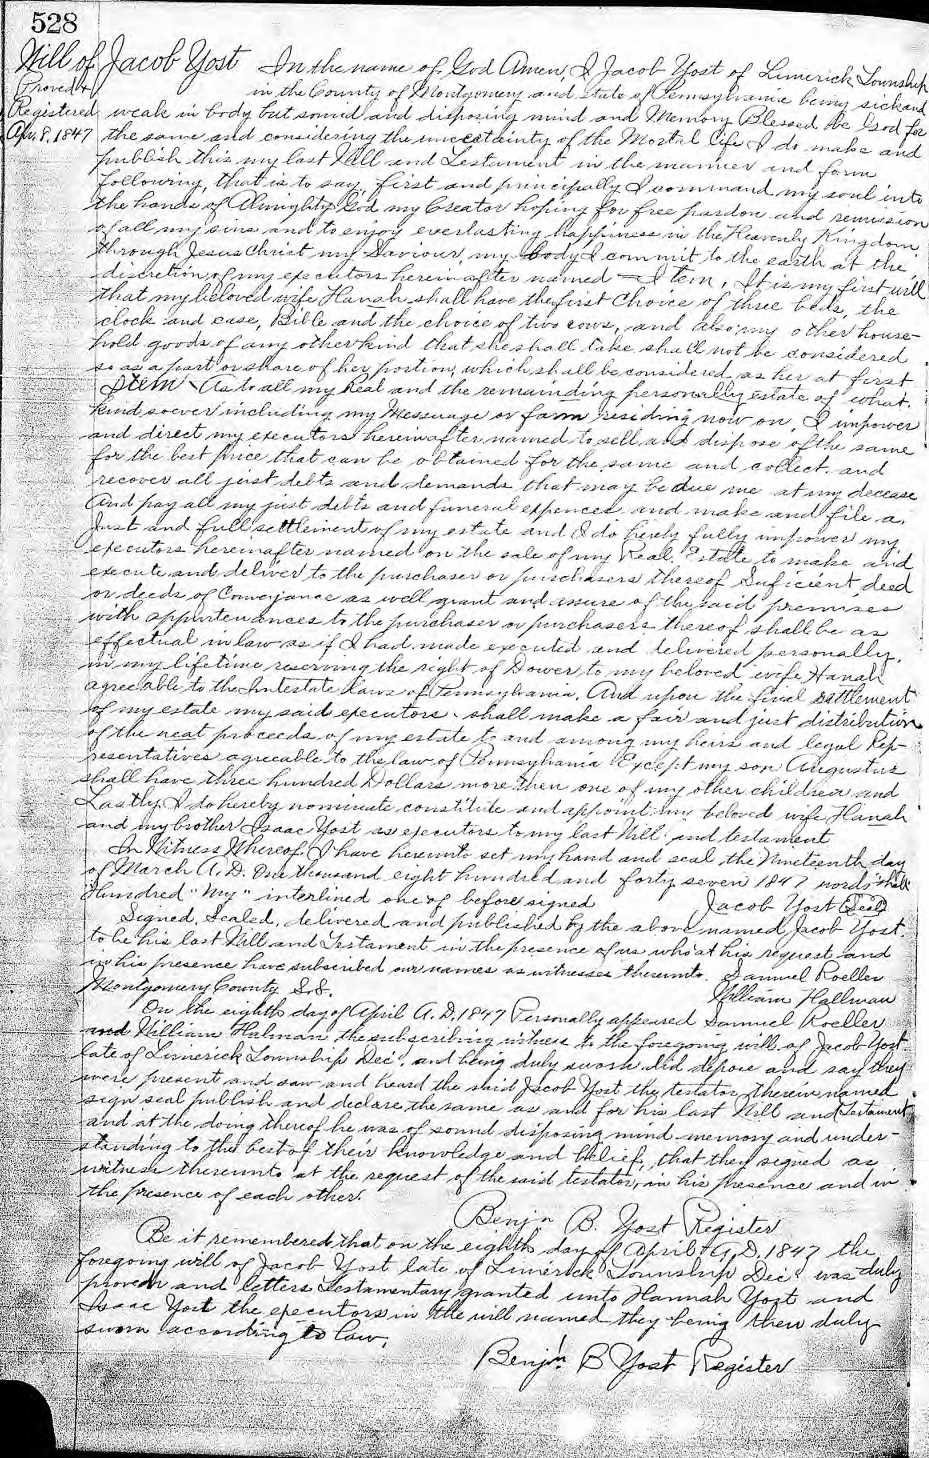 528
Will of Jacob Yost In the name of God Amen, I Jacob Yost of Limerick Township
Proved & in the County of Montgomery and state of Pennsylvania being sick and
Registered weak in body but sound and disposing mind and Memory Blessed be God for
Apr. 8, 1847 the same and considering the uncertainty of the Mortal life I do make and
publish this my last Will and Testament in the manner and form
following, that is to say, first and principally I command my soul into
the hands of Almighty God my Creator hoping for free pardon and remission
of all my sins and to enjoy everlasting happiness in the Heavenly Kingdom
through Jesus Christ my Saviour, my body I commit to the earth at the
discretion of my executors herein after named — Item, It is my first will
that my beloved wife Hanah shall have the first Choice of three beds, the
clock and case, Bible and the choice of two cows, and also my other house-
hold goods of any other kind that she shall take shall not be considered
so as a part or share of her portion, which shall be considered as her at first
Item - As to all my Real and the remainding personally estate of what
kind soever including my Messuage or farm residing now on, I impower
and direct my executors hereinafter named to sell and dispose of the same
for the best price that can be obtained for the same and collect and
recover all just debts and demands that may be due me at my decease
And pay all my just debts and funeral expences and make and file a
Just and full settlement of my estate and I do hereby fully impower my
executors hereinafter named on the sale of my Real Estate to make and
execute and deliver to the purchaser or purchasers thereof Suficient deed
or deeds of Conveyance as well grant and assure of the said premises
with appurtenances to the purchaser or purchasers thereof shall be as
effectual in law as if I had made executed and delivered personally.
in my lifetime reserving the right of Dower to my beloved wife Hanah
agreeable to the Intestate Laws of Pennsylvania. And upon the final settlement
of my estate my said executors shall make a fair and just distribution
of the neat proceeds of my estate to and among my heirs and legal Rep-
resentatives agreeable to the law of Pennsylvania Except my son Augustus
shall have three hundred Dollars more then one of my other children and
Lastly, I do hereby nominate constitute and appoint my beloved wife Hanah
and my brother Isaac Yost as executors to my last Will and testament
In Witness Whereof I have hereunto set my hand and seal the Nineteenth day
of March A. D. One thousand eight hundred and forty seven 1847 words "shall"
Hundred "My" interlined one of before signed Jacob Yost (Seal)
Signed, Sealed, delivered and published by the above named Jacob Yost.
to be his last Will and Testament in the presence of us who at his request and
in his presence have subscribed our names as witnesses thereunto. Samuel Roeller
Montgomery County S.S. William Hallman
On the eighth day of April A. D. 1847 Personally appeared Samuel Roeller
and William Halman, the subscribing witness to the foregoing will of Jacob Yost
late of Limerick Township Decd. and being duly sworn did depose and say they
were present and saw and heard the said Jacob Yost the testator therein named
sign seal publish and declare the same as and for his last Will and Testament
and at the doing thereof he was of sound disposing mind memory and under-
standing to the best of their knowledge and belief, that they signed as
witness thereunto at the request of the said testator, in his presence and in
the presence of each other.
Benjn B. Yost Register
Be it remembered that on the eighth day of April A. D. 1847 the
foregoing will of Jacob Yost late of Limerick Township Decd was duly
proven and letters Testamentary granted unto Hannah Yost and
Isaac Yost the executors in the will named they being then duly
sworn according to law.
Benjn B Yost Register